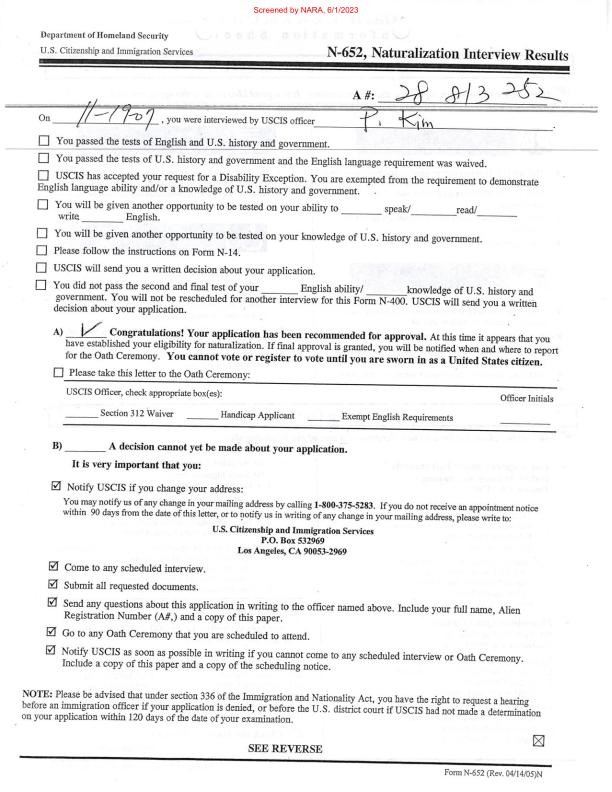 Screened by NARA, 6/1/2023
Department of Homeland Security
U.S. Citizenship and Immigration Services
N-652, Naturalization Interview Results
A #: 28 813 252
On 11-1907, you were interviewed by USCIS officer P. Kim.
☐ You passed the tests of English and U.S. history and government.
☐ You passed the tests of U.S. history and government and the English language requirement was waived.
☐ USCIS has accepted your request for a Disability Exception. You are exempted from the requirement to demonstrate
English language ability and/or a knowledge of U.S. history and government.
☐ You will be given another opportunity to be tested on your ability to _______ speak/_______ read/_______
write _______ English.
☐ You will be given another opportunity to be tested on your knowledge of U.S. history and government.
☐ Please follow the instructions on Form N-14.
☐ USCIS will send you a written decision about your application.
☐ You did not pass the second and final test of your _______ English ability/ _______ knowledge of U.S. history and
government. You will not be rescheduled for another interview for this Form N-400. USCIS will send you a written
decision about your application.
A) ✓ Congratulations! Your application has been recommended for approval. At this time it appears that you
have established your eligibility for naturalization. If final approval is granted, you will be notified when and where to report
for the Oath Ceremony. You cannot vote or register to vote until you are sworn in as a United States citizen.
☐ Please take this letter to the Oath Ceremony:
USCIS Officer, check appropriate box(es):
Officer Initials
_______ Section 312 Waiver _______ Handicap Applicant _______ Exempt English Requirements _______
B) _______ A decision cannot yet be made about your application.
It is very important that you:
☑ Notify USCIS if you change your address:
You may notify us of any change in your mailing address by calling 1-800-375-5283. If you do not receive an appointment notice
within 90 days from the date of this letter, or to notify us in writing of any change in your mailing address, please write to:
U.S. Citizenship and Immigration Services
P.O. Box 532969
Los Angeles, CA 90053-2969
☑ Come to any scheduled interview.
☑ Submit all requested documents.
☑ Send any questions about this application in writing to the officer named above. Include your full name, Alien
Registration Number (A#,) and a copy of this paper.
☑ Go to any Oath Ceremony that you are scheduled to attend.
☑ Notify USCIS as soon as possible in writing if you cannot come to any scheduled interview or Oath Ceremony.
Include a copy of this paper and a copy of the scheduling notice.
NOTE: Please be advised that under section 336 of the Immigration and Nationality Act, you have the right to request a hearing
before an immigration officer if your application is denied, or before the U.S. district court if USCIS had not made a determination
on your application within 120 days of the date of your examination.
☒
SEE REVERSE
Form N-652 (Rev. 04/14/05)N